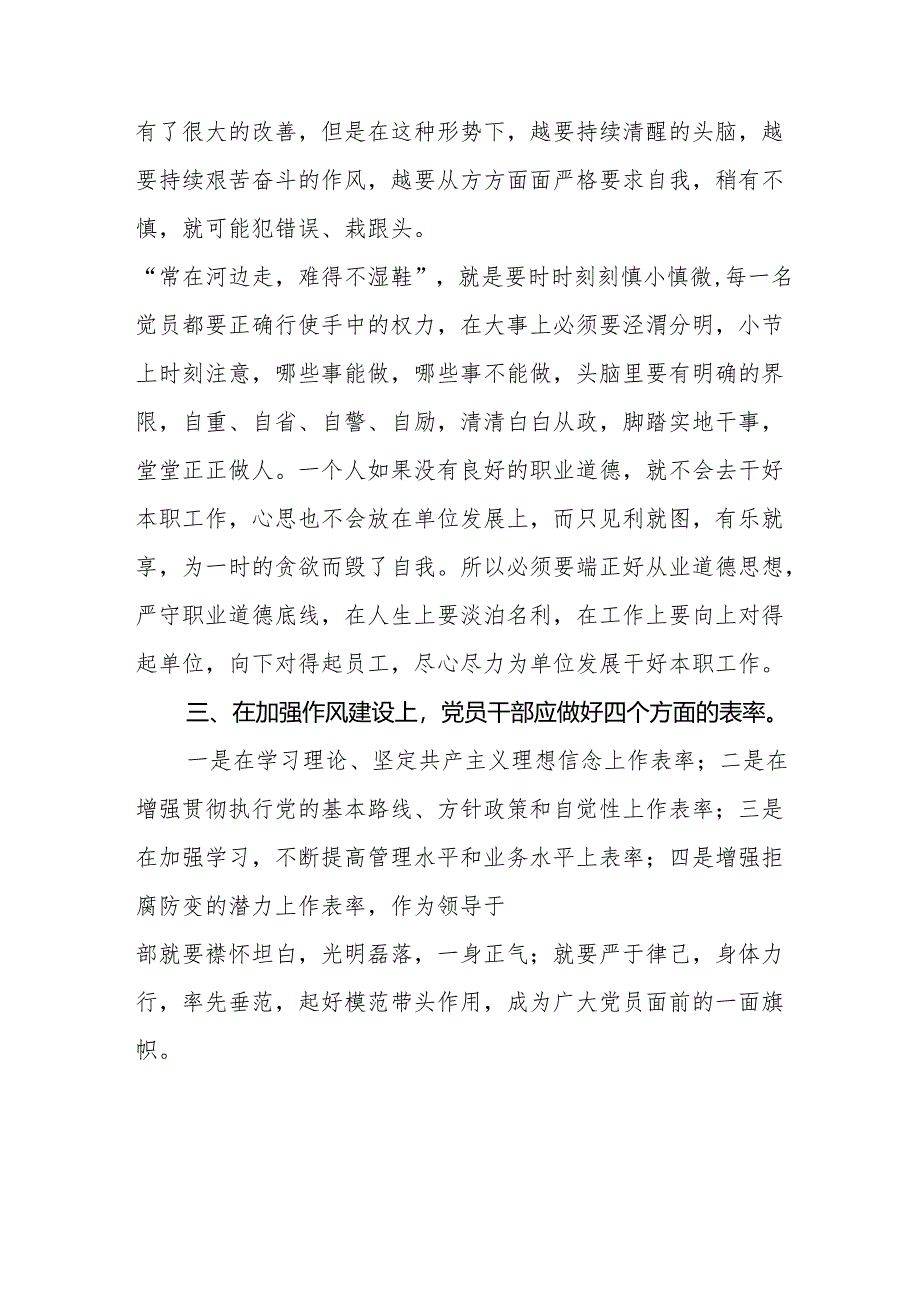 有了很大的改善，但是在这种形势下，越要持续清醒的头脑，越
要持续艰苦奋斗的作风，越要从方方面面严格要求自我，稍有不
慎，就可能犯错误、栽跟头。
“常在河边走，难得不湿鞋”，就是要时时刻刻慎小慎微,每一名
党员都要正确行使手中的权力，在大事上必须要泾渭分明，小节
上时刻注意，哪些事能做，哪些事不能做，头脑里要有明确的界
限，自重、自省、自警、自励，清清白白从政，脚踏实地干事，
堂堂正正做人。一个人如果没有良好的职业道德，就不会去干好
本职工作，心思也不会放在单位发展上，而只见利就图，有乐就
享，为一时的贪欲而毁了自我。所以必须要端正好从业道德思想，
严守职业道德底线，在人生上要淡泊名利，在工作上要向上对得
起单位，向下对得起员工，尽心尽力为单位发展干好本职工作。
三、在加强作风建设上，党员干部应做好四个方面的表率。
一是在学习理论、坚定共产主义理想信念上作表率；二是在
增强贯彻执行党的基本路线、方针政策和自觉性上作表率；三是
在加强学习，不断提高管理水平和业务水平上表率；四是增强拒
腐防变的潜力上作表率，作为领导于
部就要襟怀坦白，光明磊落，一身正气；就要严于律己，身体力
行，率先垂范，起好模范带头作用，成为广大党员面前的一面旗
帜。